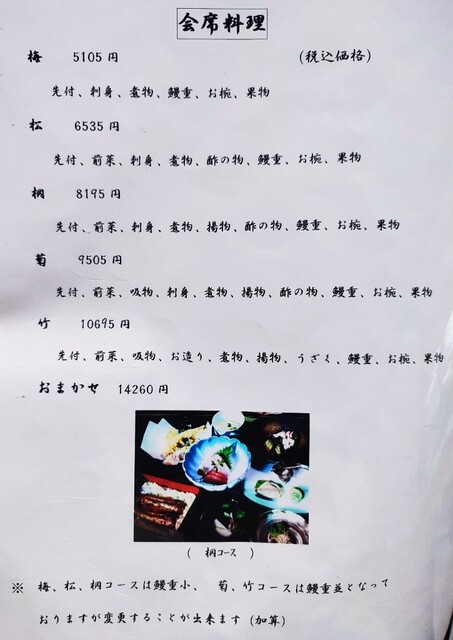 会席料理
梅 5105円 (税込価格)
先付、刺身、煮物、鰻重、お椀、果物
松 6535円
先付、前菜、刺身、煮物、酢の物、鰻重、お椀、果物
桐 8195円
先付、前菜、刺身、煮物、揚物、酢の物、鰻重、お椀、果物
菊 9505円
先付、前菜、吸物、刺身、煮物、揚物、酢の物、鰻重、お椀、果物
竹 10695円
先付、前菜、吸物、お造り、煮物、揚物、うざく、鰻重、お椀、果物
おまかせ 14260円
( 桐コース )
※ 梅、松、桐コースは鰻重小、 菊、竹コースは鰻重並となって
おりますが変更することが出来ます(加算)